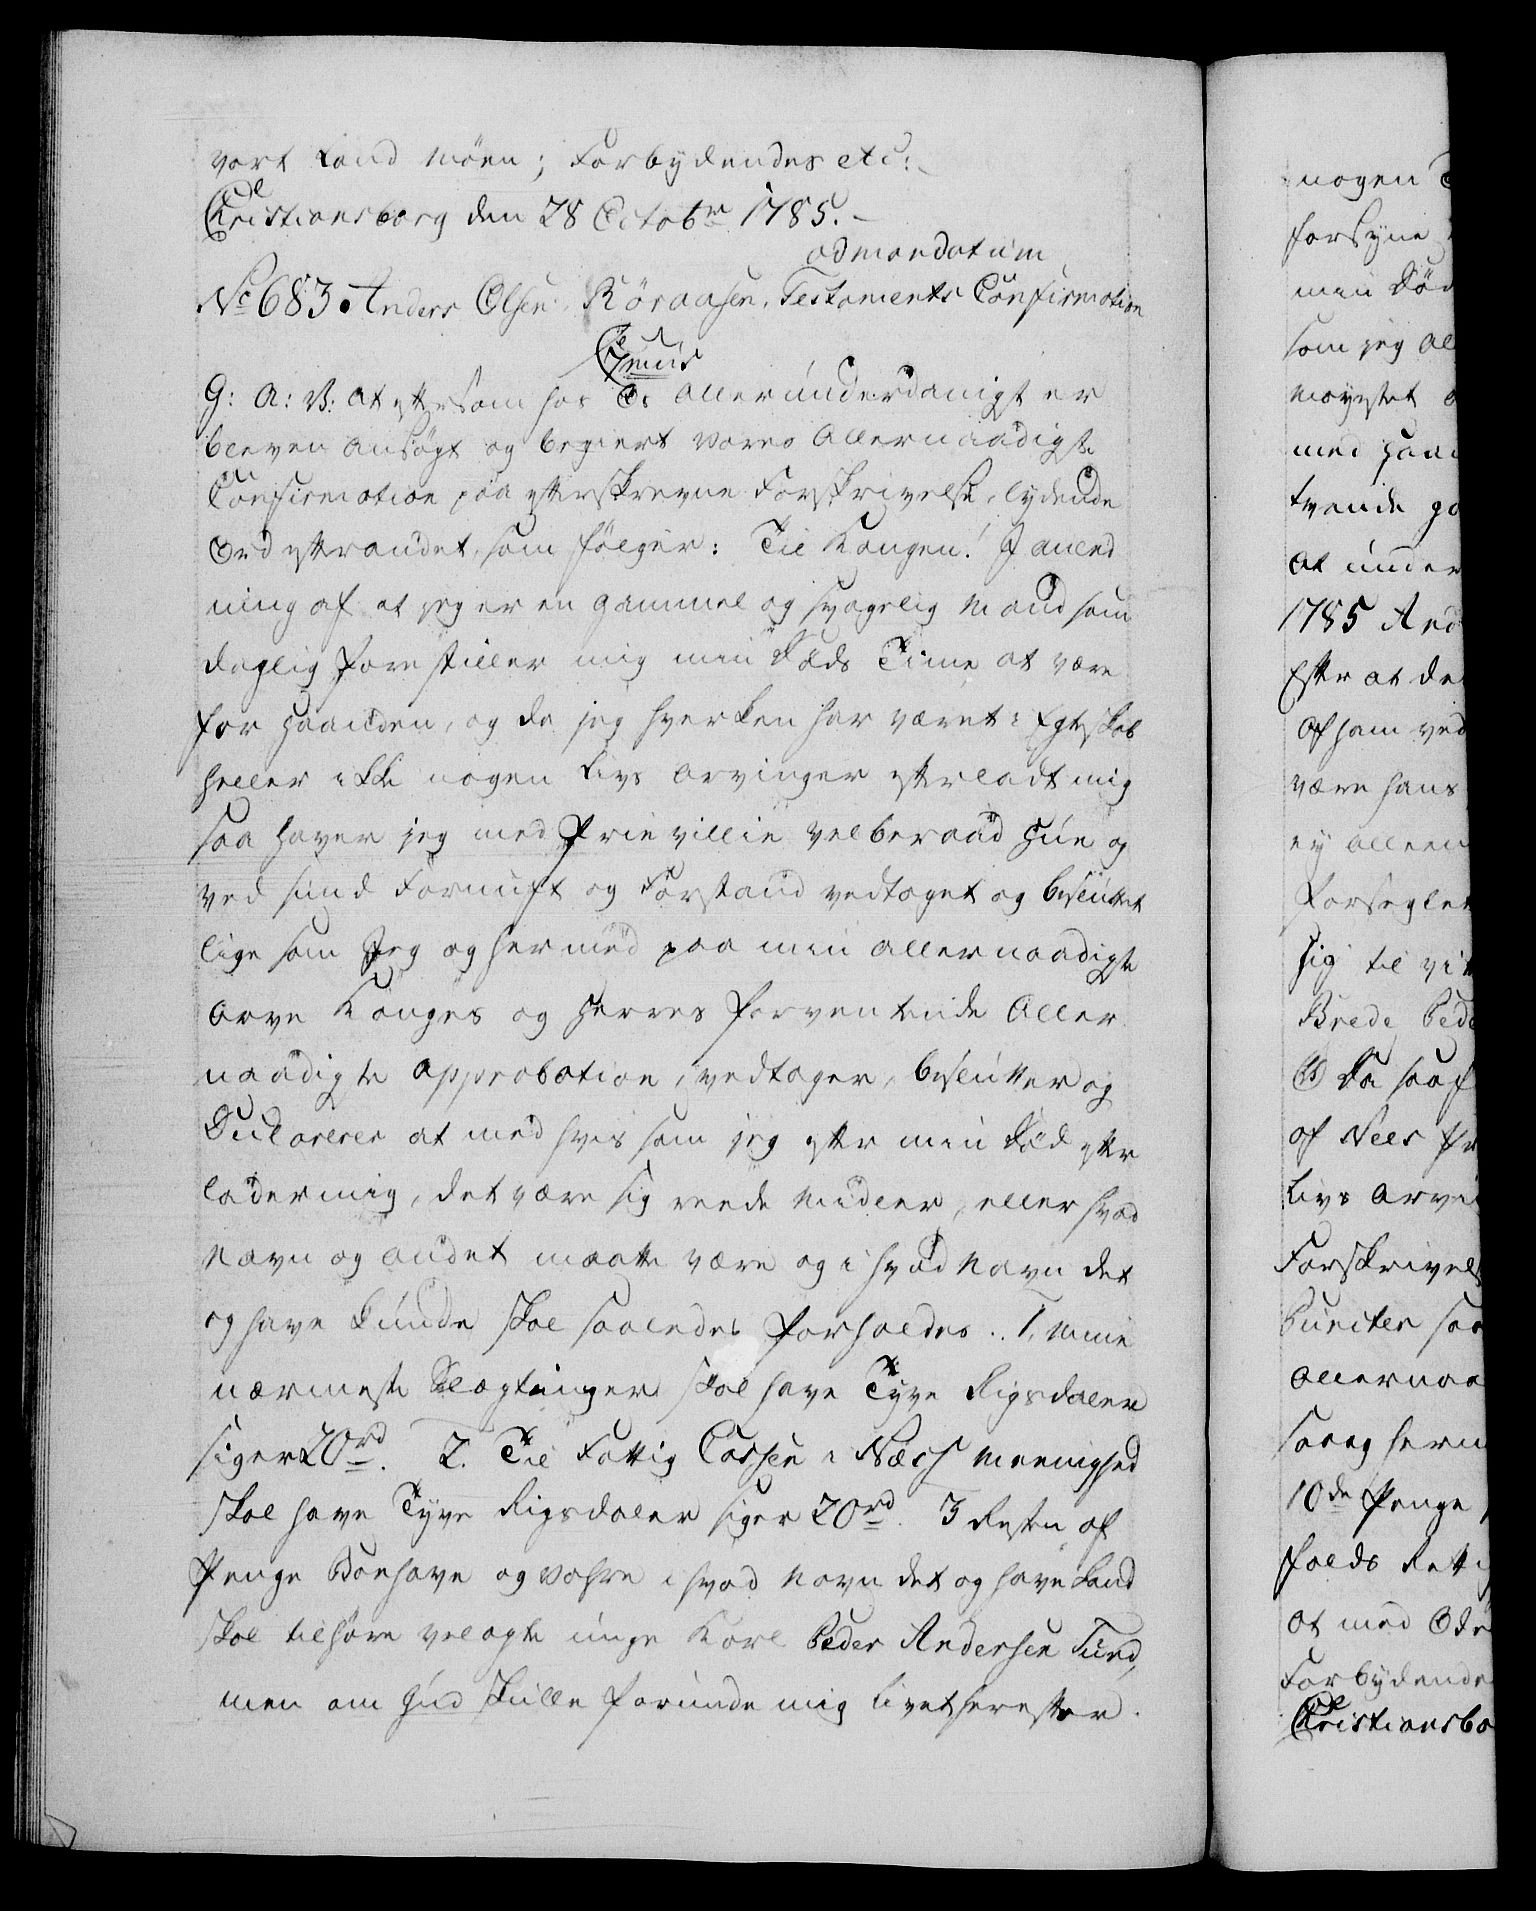 vort Land Möen; Forbydendes etc:
Christiansborg den 28 Octobr 1785.
ad mandatum
No 683. Anders Olsen Röraasen, Testaments Confirmation
G: A: V: at eftersom hos Os allerunderdanigst er
bleven ansøgt og begiert Vores Allernaadigste
Confirmation paa efterskrevne Forskrivelse, lydende
Ord efter andet, som følger: Til Kongen! I anled
ning af at jeg er en gammel og svagelig Mand som
daglig forestiller mig min Døds Time at være
for Haanden, og da jeg hverken har været i Egteskab
heller ikke nogen Livs Arvinger efterladt mig
saa haver jeg med frie villie velberaad Hue og
ved sund Fornuft og Forstand vedtaget og besluttet
lige som Jeg og hermed paa min allernaadigste
Arve Konges og Herres forventende Aller
naadigste approbation, vedtager, beslutter og
Declarerer at med hvis som jeg efter min Død efter
lader mig, det være sig rede Midler, eller hvad
Navn og andet maatte være og i hvad Navn det
og have kunde skal saaledes forholdes. 1, Mine
nærmeste Slægtinger skal have Tyve Rigsdaler
siger 20rd. 2. Til Fattig Cassen i Næss Meenighed
skal have Tyve Rigsdaler siger 20rd. 3 Resten af
Penge Boehave og Vahre i hvad Navn det og have kand
skal tilhøre velagte unge Karl Peder Andersen Lund,
men om Gud skulle forunde mig Livet herefter.
nogen
forsyne
min Död
som jeg al
Mayestet
med Haan
tvende go
at under
1785 And
Efter at de
af ham ved
være hans
ey alleen
forseglet
sig til vi
Brede Ped
Da saaf
of Nees
Livs Arvi
Forskrivels
Puncter saa
Allernaa
saa og herm
10de Penge
holds Rett
at med
Forbydende
Christiansbo